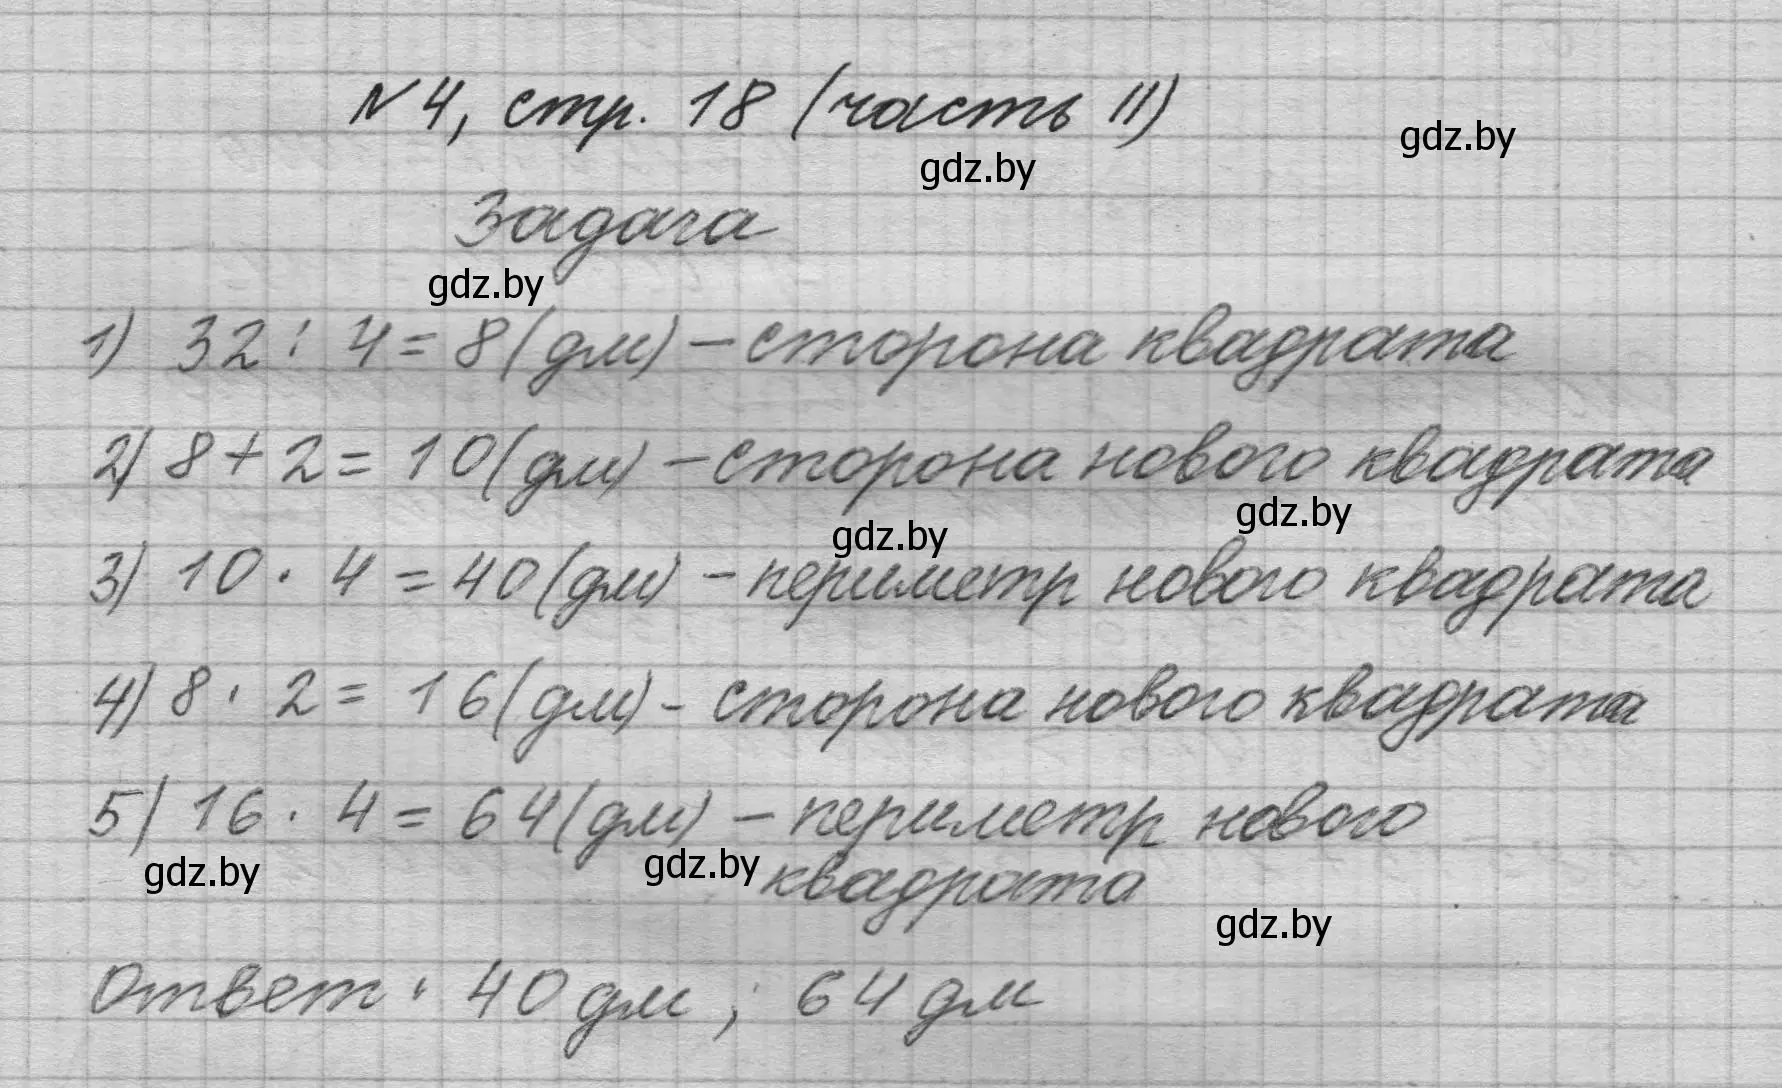 №4, стр. 18 (часть II)
gdz.by
gdz.by
Задача
gdz.by
1) 32 : 4 = 8 (дм) – сторона квадрата
2) 8 + 2 = 10 (дм) – сторона нового квадрата
gdz.by
gdz.by
3) 10 · 4 = 40 (дм) – периметр нового квадрата
4) 8 · 2 = 16 (дм) – сторона нового квадрата
5) 16 · 4 = 64 (дм) – периметр нового
gdz.by
gdz.by
квадрата
gdz.by
Ответ: 40 дм ; 64 дм